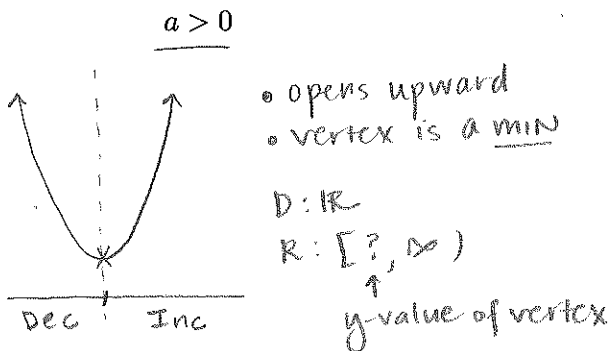 a > 0
• opens upward
• vertex is a MIN
D: ℝ
R: [?, ∞)
↑
y-value of vertex
Dec Inc